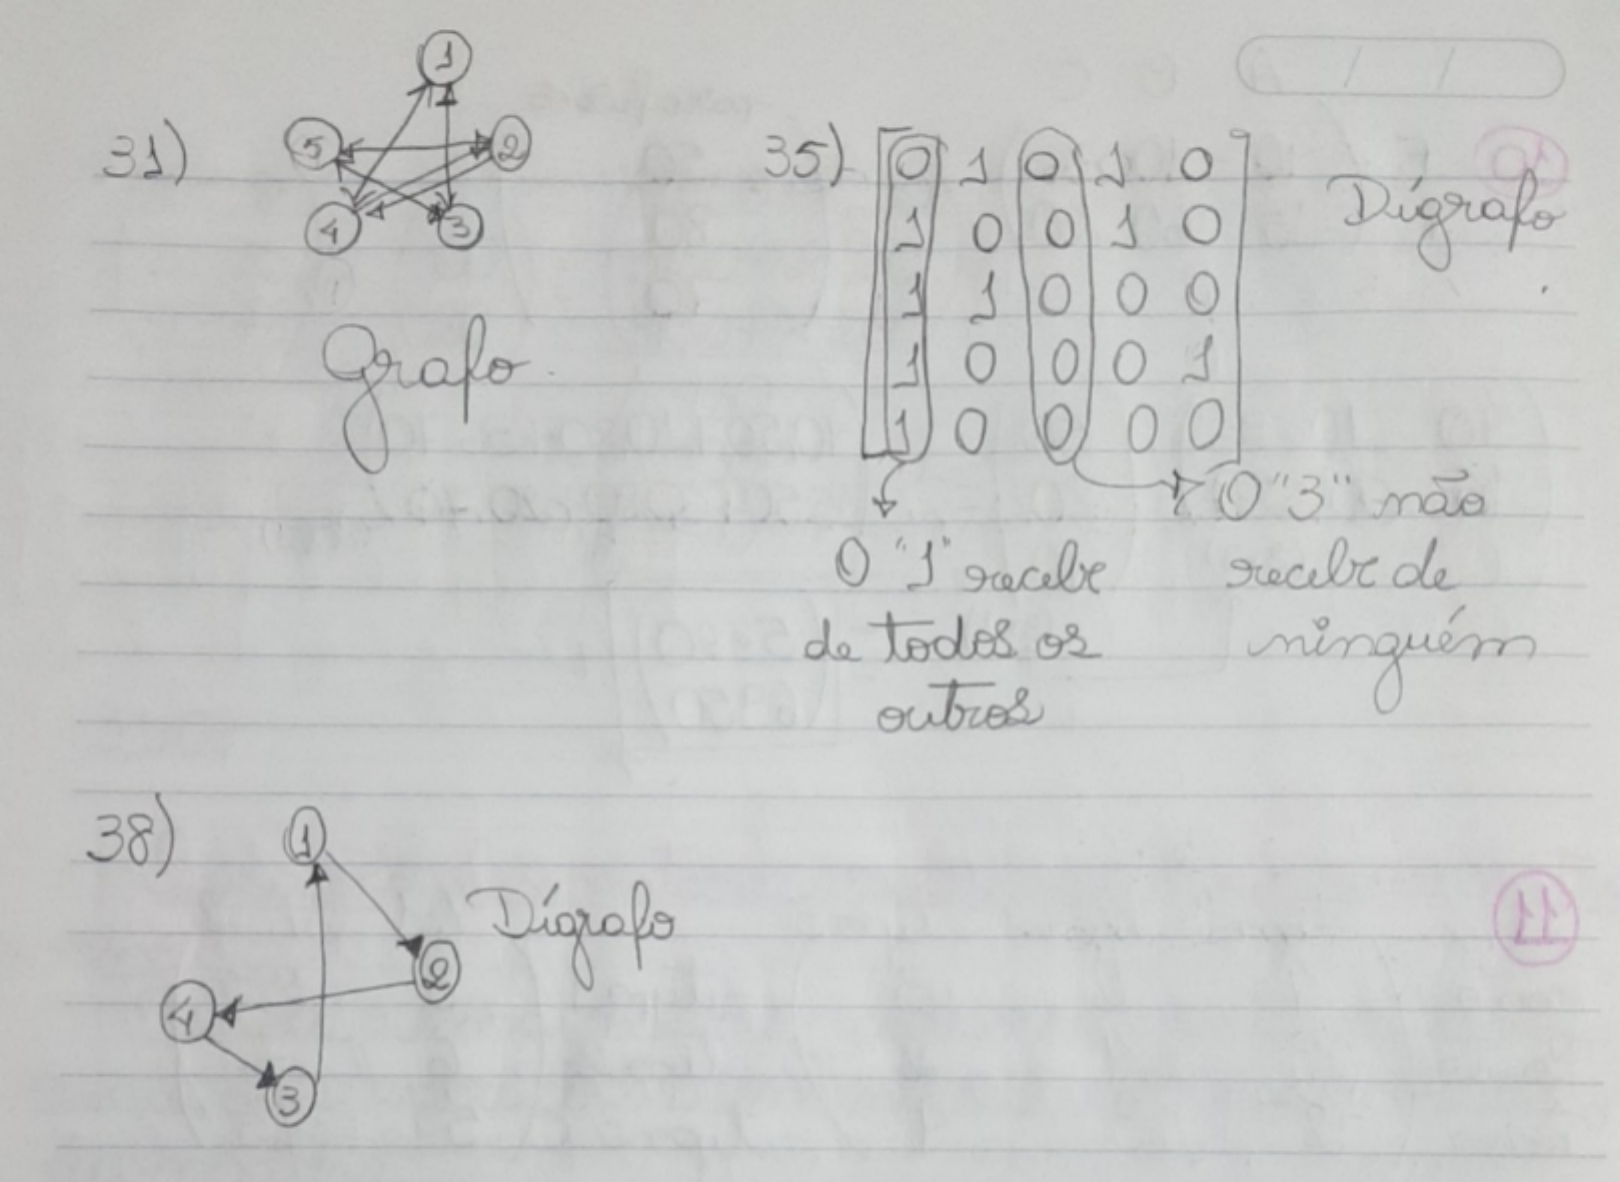 31)
1
5 2
4 3
Grafo.
35) 0 1 0 1 0 Dígrafo
1 0 0 1 0
1 1 0 0 0
1 0 0 0 1
1 0 0 0 0
O "3" não
O "1" recebe recebe de
de todos os ninguém
outros
38) 1
Dígrafo
2
4
3